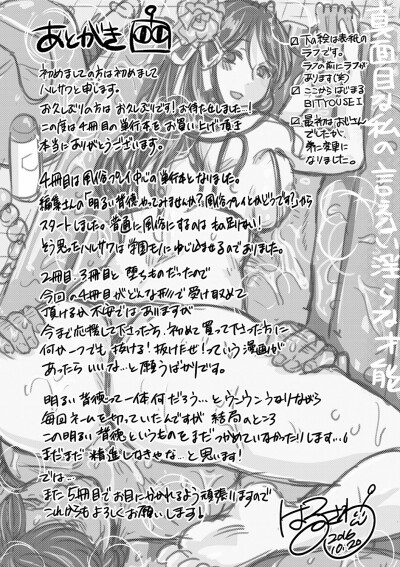 あとがき
初めましての方は初めまして
ハルサワと申します。
お久しぶりの方は お久しぶりです！お待たせしましたー！
この度は4冊目の単行本をお買い上げ頂き
本当にありがとうございます。
4冊目は風俗プレイ中心の単行本となりました。
編集さんの「明るい背徳やってみませんか？風俗プレイとかどうです？」から
スタートしました。普通に風俗にするのはもの足りない！
そう思ったハルサワは学園モノにねじ込ませるのでありました。
2冊目、3冊目と堕ちものだったので
今回の4冊目がどんな形で受け取めて
頂けるか不安ではありますが
今まで応援して下さった方、初めて買って下さった方に
何か一つでも抜ける！抜けたぜ！っていう漫画が
あったらいいな…と願うばかりです。
明るい背徳って一体何だろう…とウンウンうなりながら
毎回ネームを切っていたんですが 結局のところ
この明るい背徳というものをまだつかめていなかったりします…。
まだまだ精進しなきゃな…と思います！
では…
また5冊目でお目にかかれるよう頑張りますので
これからもよろしくお願いします！
下の絵は表紙の
ラフです。
ラフの前にラフが
あります(笑)
ここからはじまる
BITYOUSEI
最初はおじさん
でしたが、
第二変更に
なりました。
真面目な私の
淫らな才能
はるさわ
2016
10.20